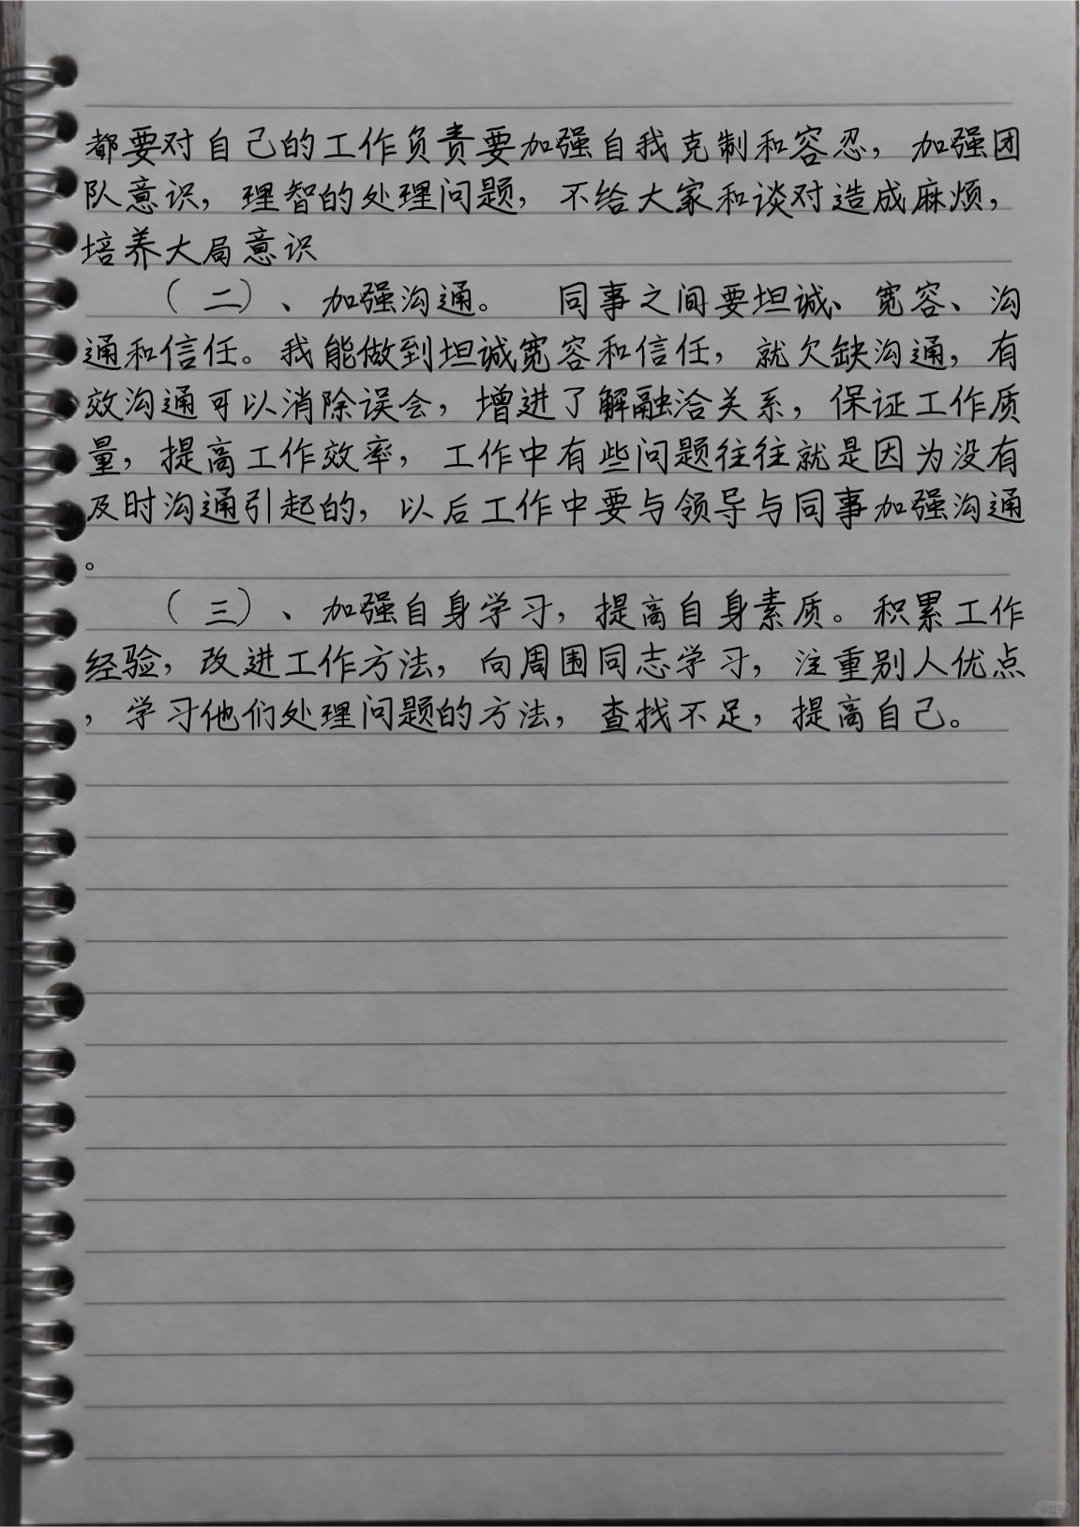 都要对自己的工作负责要加强自我克制和容忍，加强团
队意识，理智的处理问题，不给大家和谈对造成麻烦，
培养大局意识
（二）、加强沟通。 同事之间要坦诚、宽容、沟
通和信任。我能做到坦诚宽容和信任，就欠缺沟通，有
效沟通可以消除误会，增进了解融洽关系，保证工作质
量，提高工作效率，工作中有些问题往往就是因为没有
及时沟通引起的，以后工作中要与领导与同事加强沟通
。
（三）、加强自身学习，提高自身素质。积累工作
经验，改进工作方法，向周围同志学习，注重别人优点
，学习他们处理问题的方法，查找不足，提高自己。